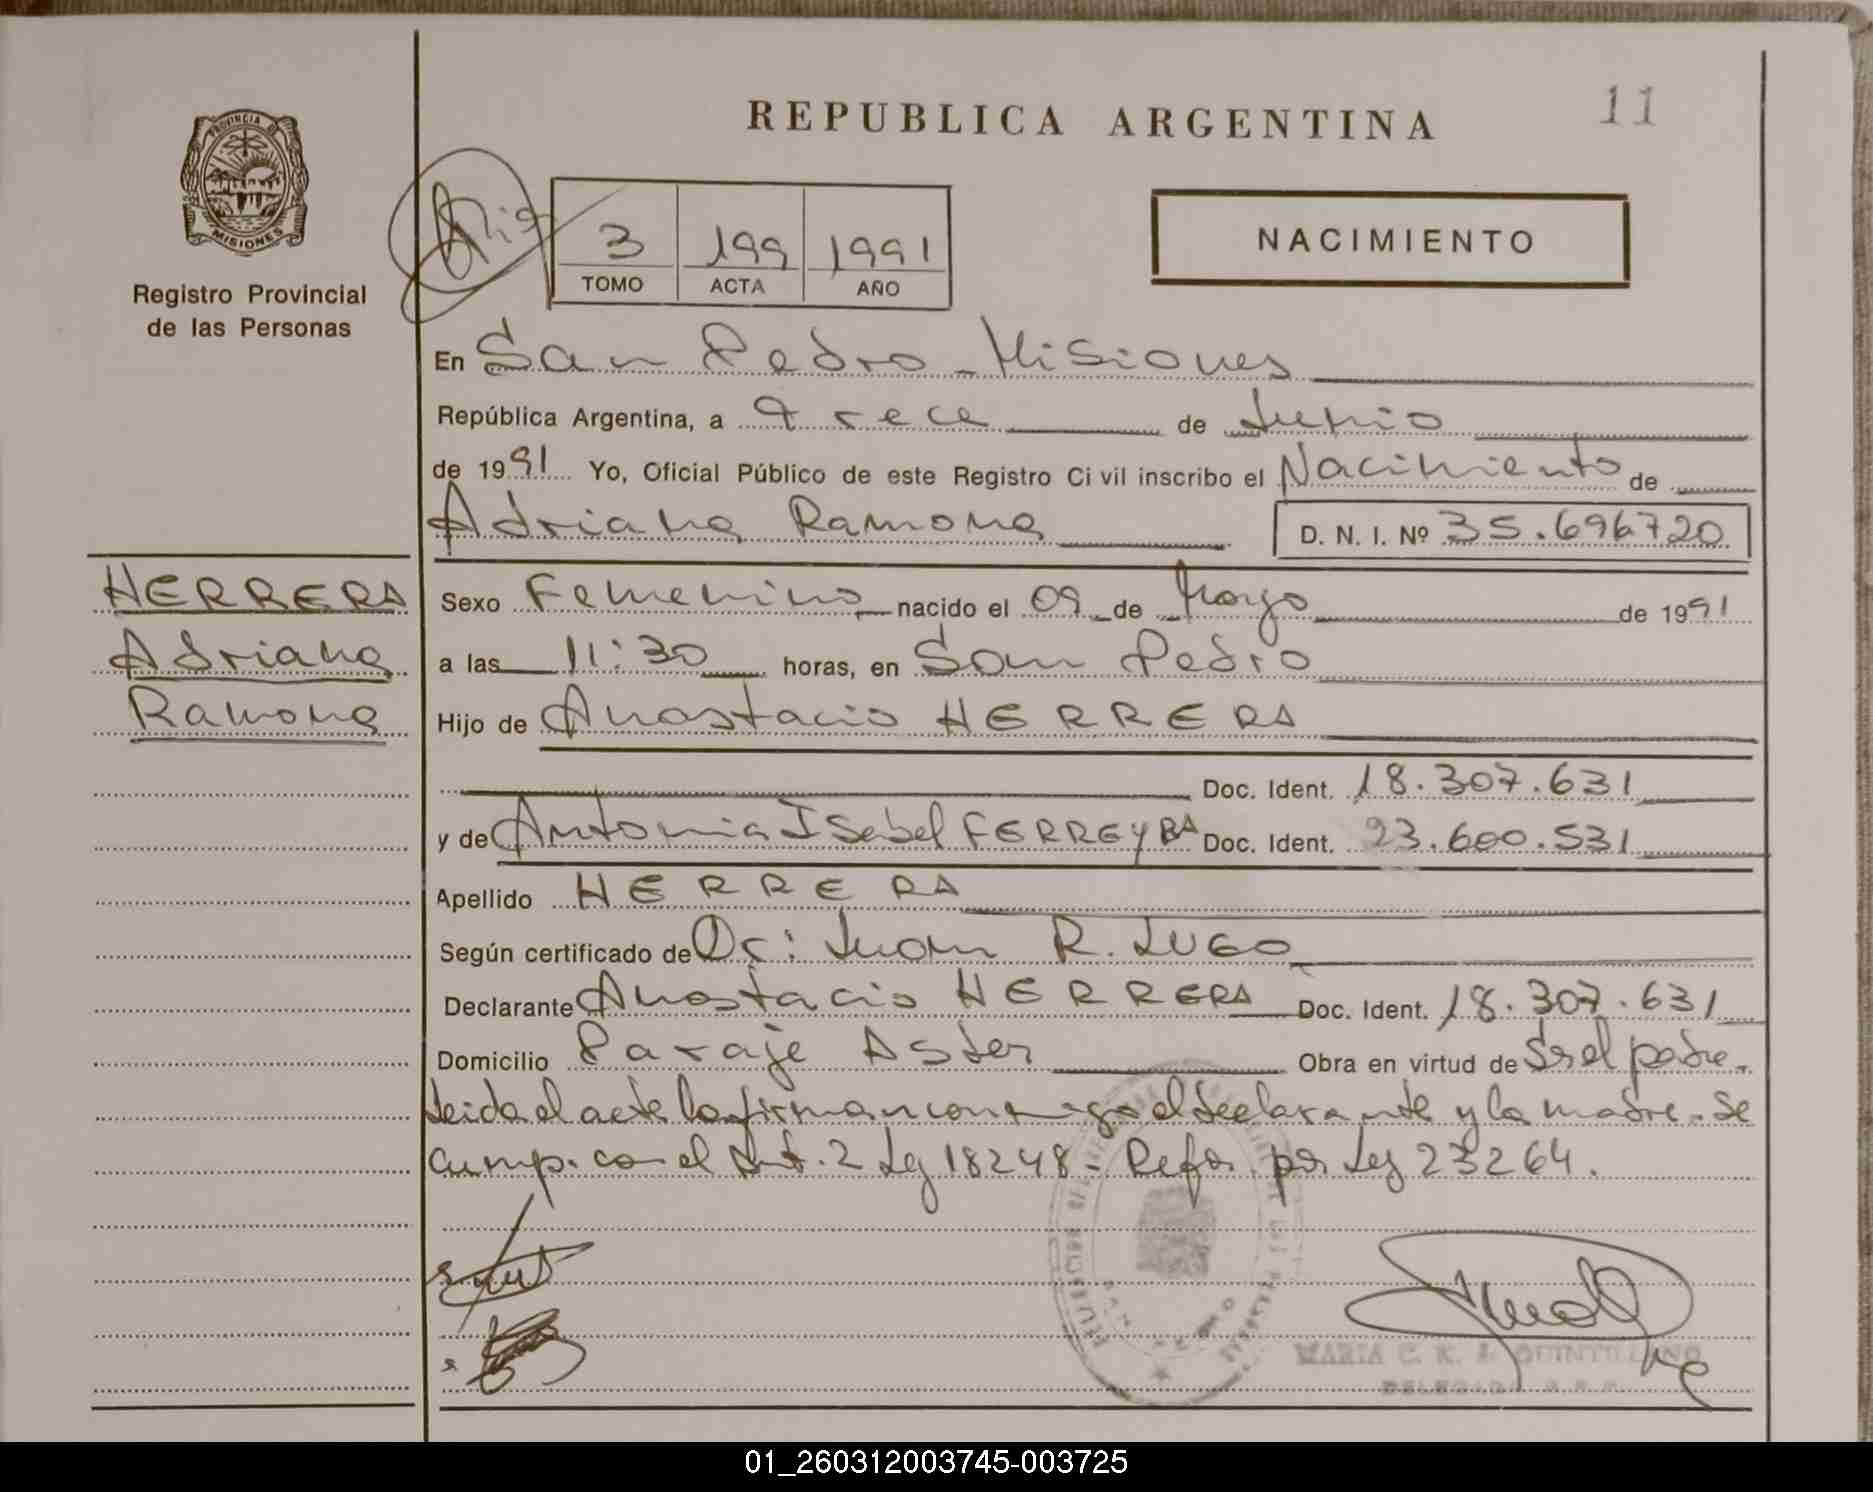 11
REPUBLICA ARGENTINA
PROVINCIA DE
MISIONES
Registro Provincial
de las Personas
3 199 1991
TOMO ACTA AÑO
NACIMIENTO
En San Pedro - Misiones
República Argentina, a Trece de Junio
de 1991 Yo, Oficial Público de este Registro Civil inscribo el Nacimiento de
Adriana Ramona D. N. I. Nº 35.696720
HERRERA
Adriana
Ramona
Sexo Femenino nacido el 09 de Mayo de 1991
a las 11:30 horas, en San Pedro
Hijo de Anastacio HERRERA
Doc. Ident. 18.307.631
y de Antonia Isabel FERREYRA Doc. Ident. 23.600.531
Apellido HERRERA
Según certificado de Dr: Juan R. LUGO
Declarante Anastacio HERRERA Doc. Ident. 18.307.631
Domicilio Paraje Aster Obra en virtud de Ser el padre.
Leida el acta la firman conmigo el declarante y la madre. Se
cump. con el Art. 2 Ley 18248 - Refor. por Ley 23264.
SAN PEDRO
MARIA C. K. QUINTILLANO
DELEGADA
01_260312003745-003725